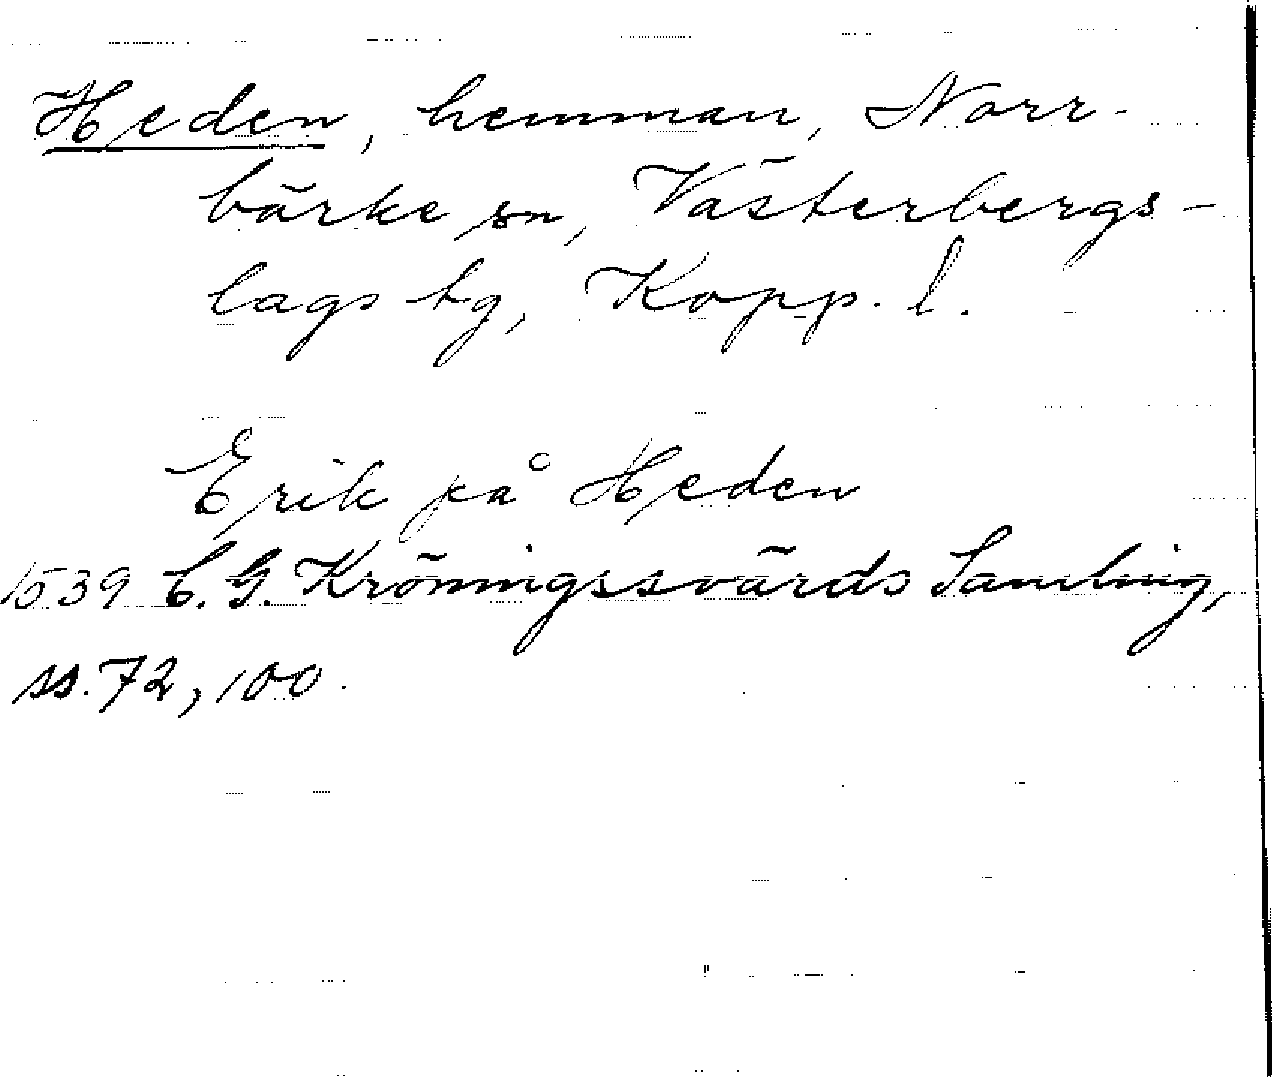 Heden, hemman, Norr-
bärke sn, Västerbergs-
lags tg, Kopp. l.
Erik på Heden
1539 C. G. Kröningssvärds Samling,
ss. 72, 100.